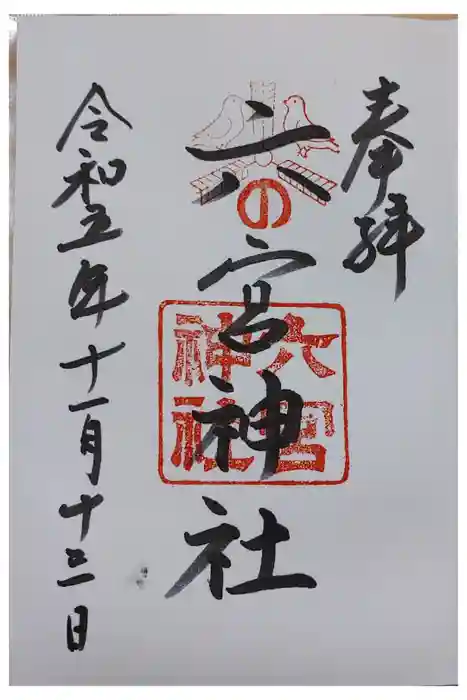 奉拝
六の宮神社
六宮
神社
令和五年十一月十三日